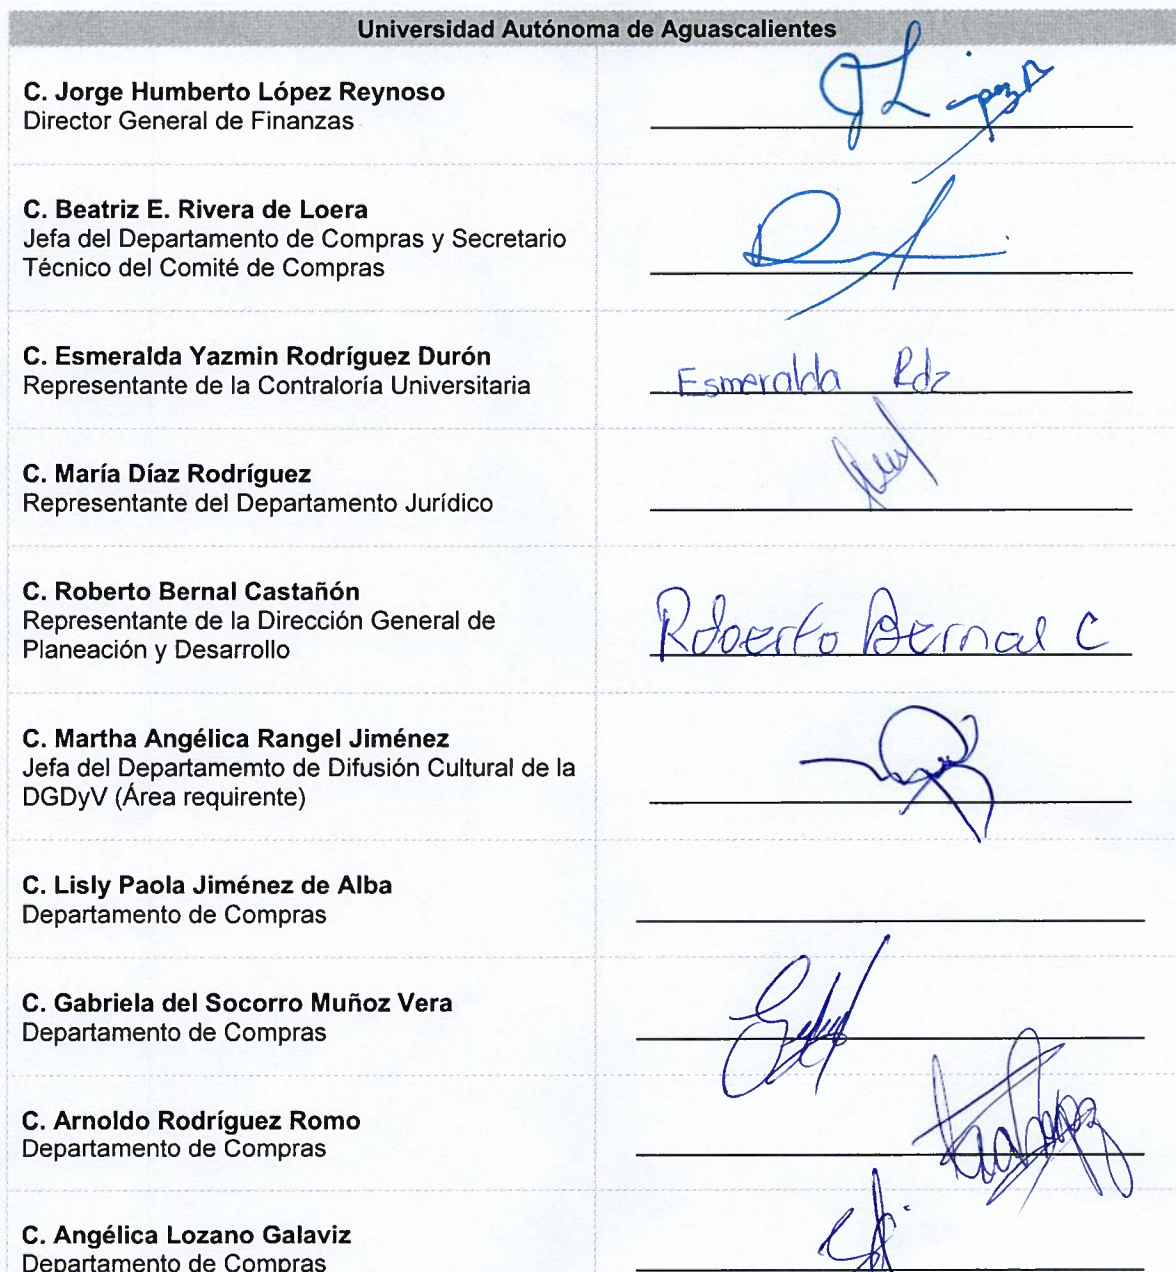 Universidad Autónoma de Aguascalientes
C. Jorge Humberto López Reynoso
Director General de Finanzas
C. Beatriz E. Rivera de Loera
Jefa del Departamento de Compras y Secretario
Técnico del Comité de Compras
C. Esmeralda Yazmin Rodríguez Durón
Representante de la Contraloría Universitaria
Esmeralda Rdz
C. María Díaz Rodríguez
Representante del Departamento Jurídico
C. Roberto Bernal Castañón
Representante de la Dirección General de
Planeación y Desarrollo
Roberto Bernal C
C. Martha Angélica Rangel Jiménez
Jefa del Departamemto de Difusión Cultural de la
DGDyV (Área requirente)
C. Lisly Paola Jiménez de Alba
Departamento de Compras
C. Gabriela del Socorro Muñoz Vera
Departamento de Compras
C. Arnoldo Rodríguez Romo
Departamento de Compras
C. Angélica Lozano Galaviz
Departamento de Compras